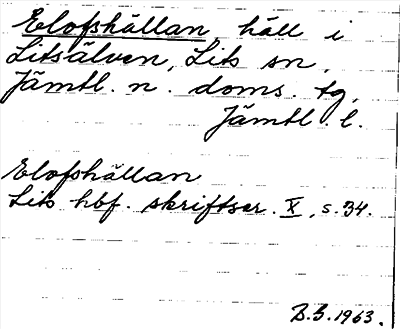 Elofshällan, häll i
Litsälven, Lits sn,
Jämtl. n. doms. tg,
Jämtl. l.
Elofshällan
Lits hbf. skriftser. X, s. 34.
1963.